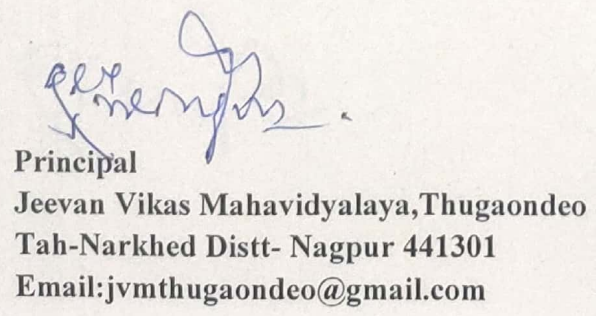 Principal
Jeevan Vikas Mahavidyalaya,Thugaondeo
Tah-Narkhed Distt- Nagpur 441301
Email:jvmthugaondeo@gmail.com